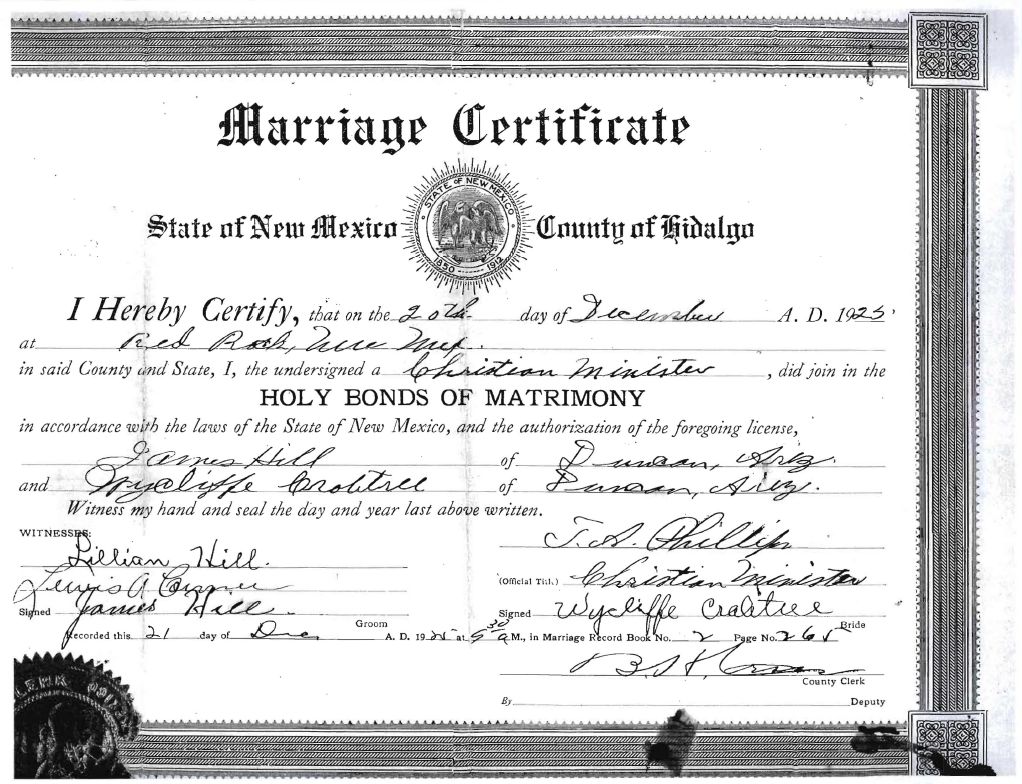 Marriage Certificate
STATE OF NEW MEXICO
1850 1912
State of New Mexico County of Hidalgo
I Hereby Certify, that on the 20th. day of December A. D. 1925
at Red Rock, New Mex.
in said County and State, I, the undersigned a Christian Minister, did join in the
HOLY BONDS OF MATRIMONY
in accordance with the laws of the State of New Mexico, and the authorization of the foregoing license,
James Hill of Duncan, Ariz.
and Wycliffe Crabtree of Duncan, Ariz.
Witness my hand and seal the day and year last above written.
WITNESSES:
Lillian Hill.
Lewis A
T. A. Phillips
(Official Title) Christian Minister
Signed James Hill. Groom
Signed Wycliffe Crabtree Bride
Recorded this 21 day of Dec A. D. 1925 at 9 30 A M., in Marriage Record Book No. 2 Page No. 265
County Clerk
By Deputy
CLERK